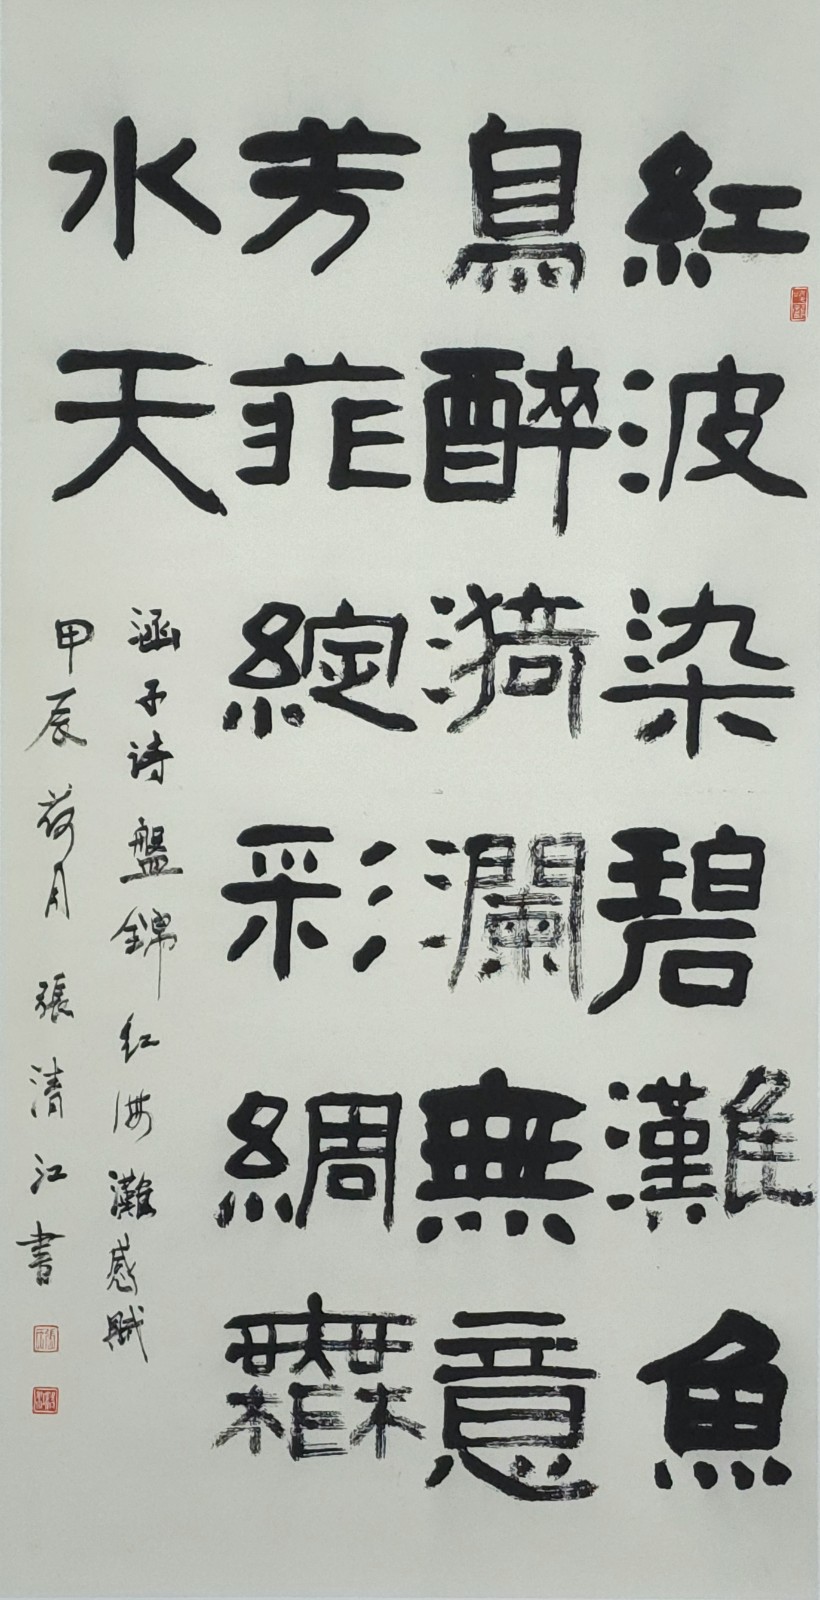 紅波染碧灘魚
鳥醉漪瀾無意
芳菲綻彩綢舞
水天
涵子诗盤錦红海灘感賦
甲辰荷月張清江書